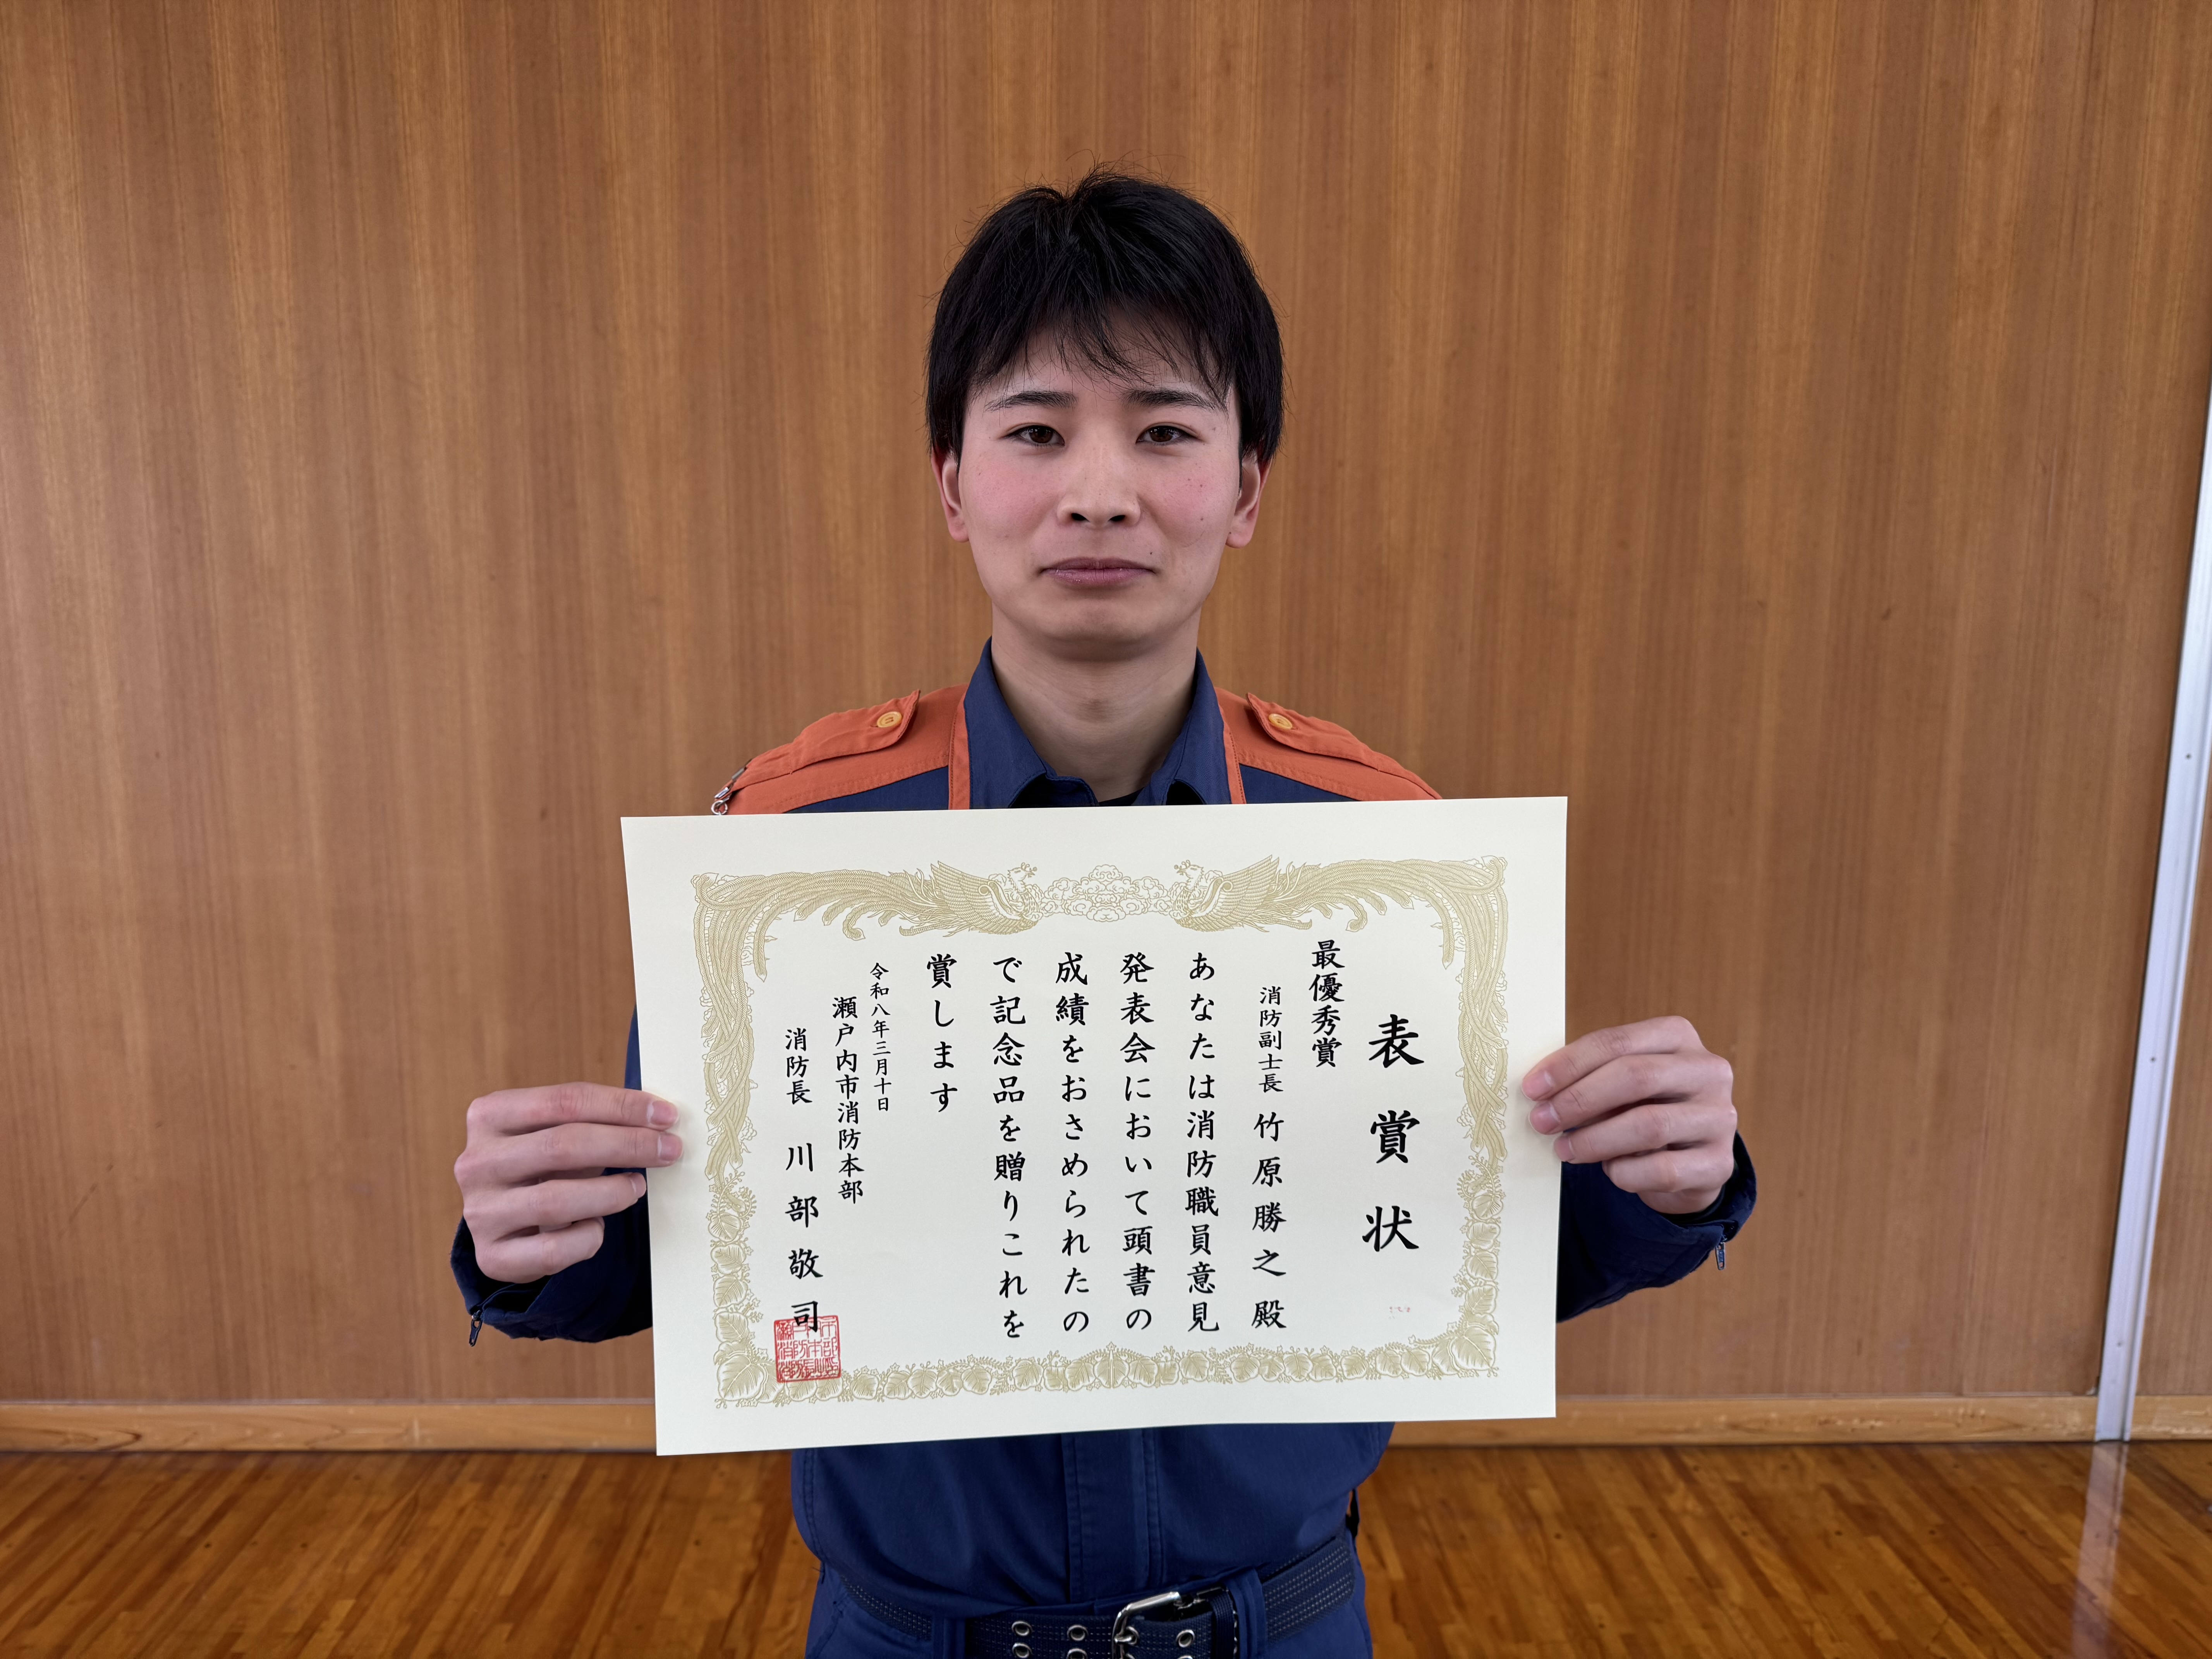 表賞状
最優秀賞
消防副士長 竹原勝之殿
あなたは消防職員意見
発表会において頭書の
成績をおさめられたの
で記念品を贈りこれを
賞します
令和八年三月十日
瀬戸内市消防本部
消防長 川部敬司